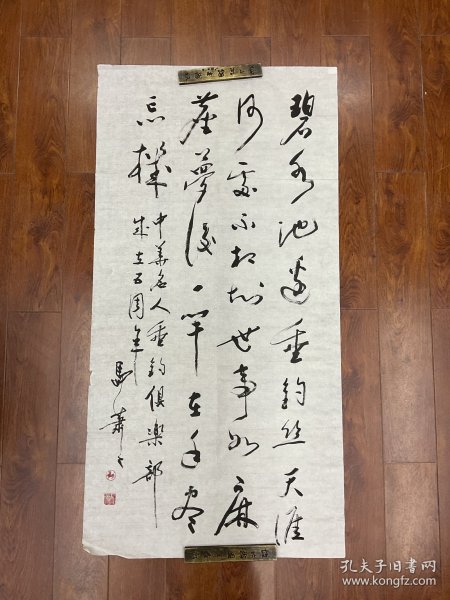 碧水池边垂钓丝天涯
何处不相知世事如麻
尘梦后一竿在手尽
忘机
中华名人垂钓俱樂部
成立五周年
馬萧萧
孔夫子旧书网
www.kongfz.com